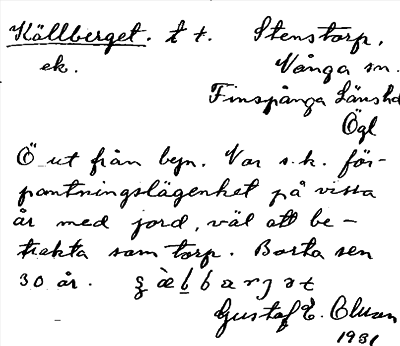 Källberget. t t. Stenstorp,
ek. Vånga sn.
Finspånga Länshd
Ögl
Ö ut från byn. Var s.k. för-
pantningslägenhet på vissa
år med jord, väl att be-
trakta som torp. Borta sen
30 år.
Gustaf E. Olsson
1931